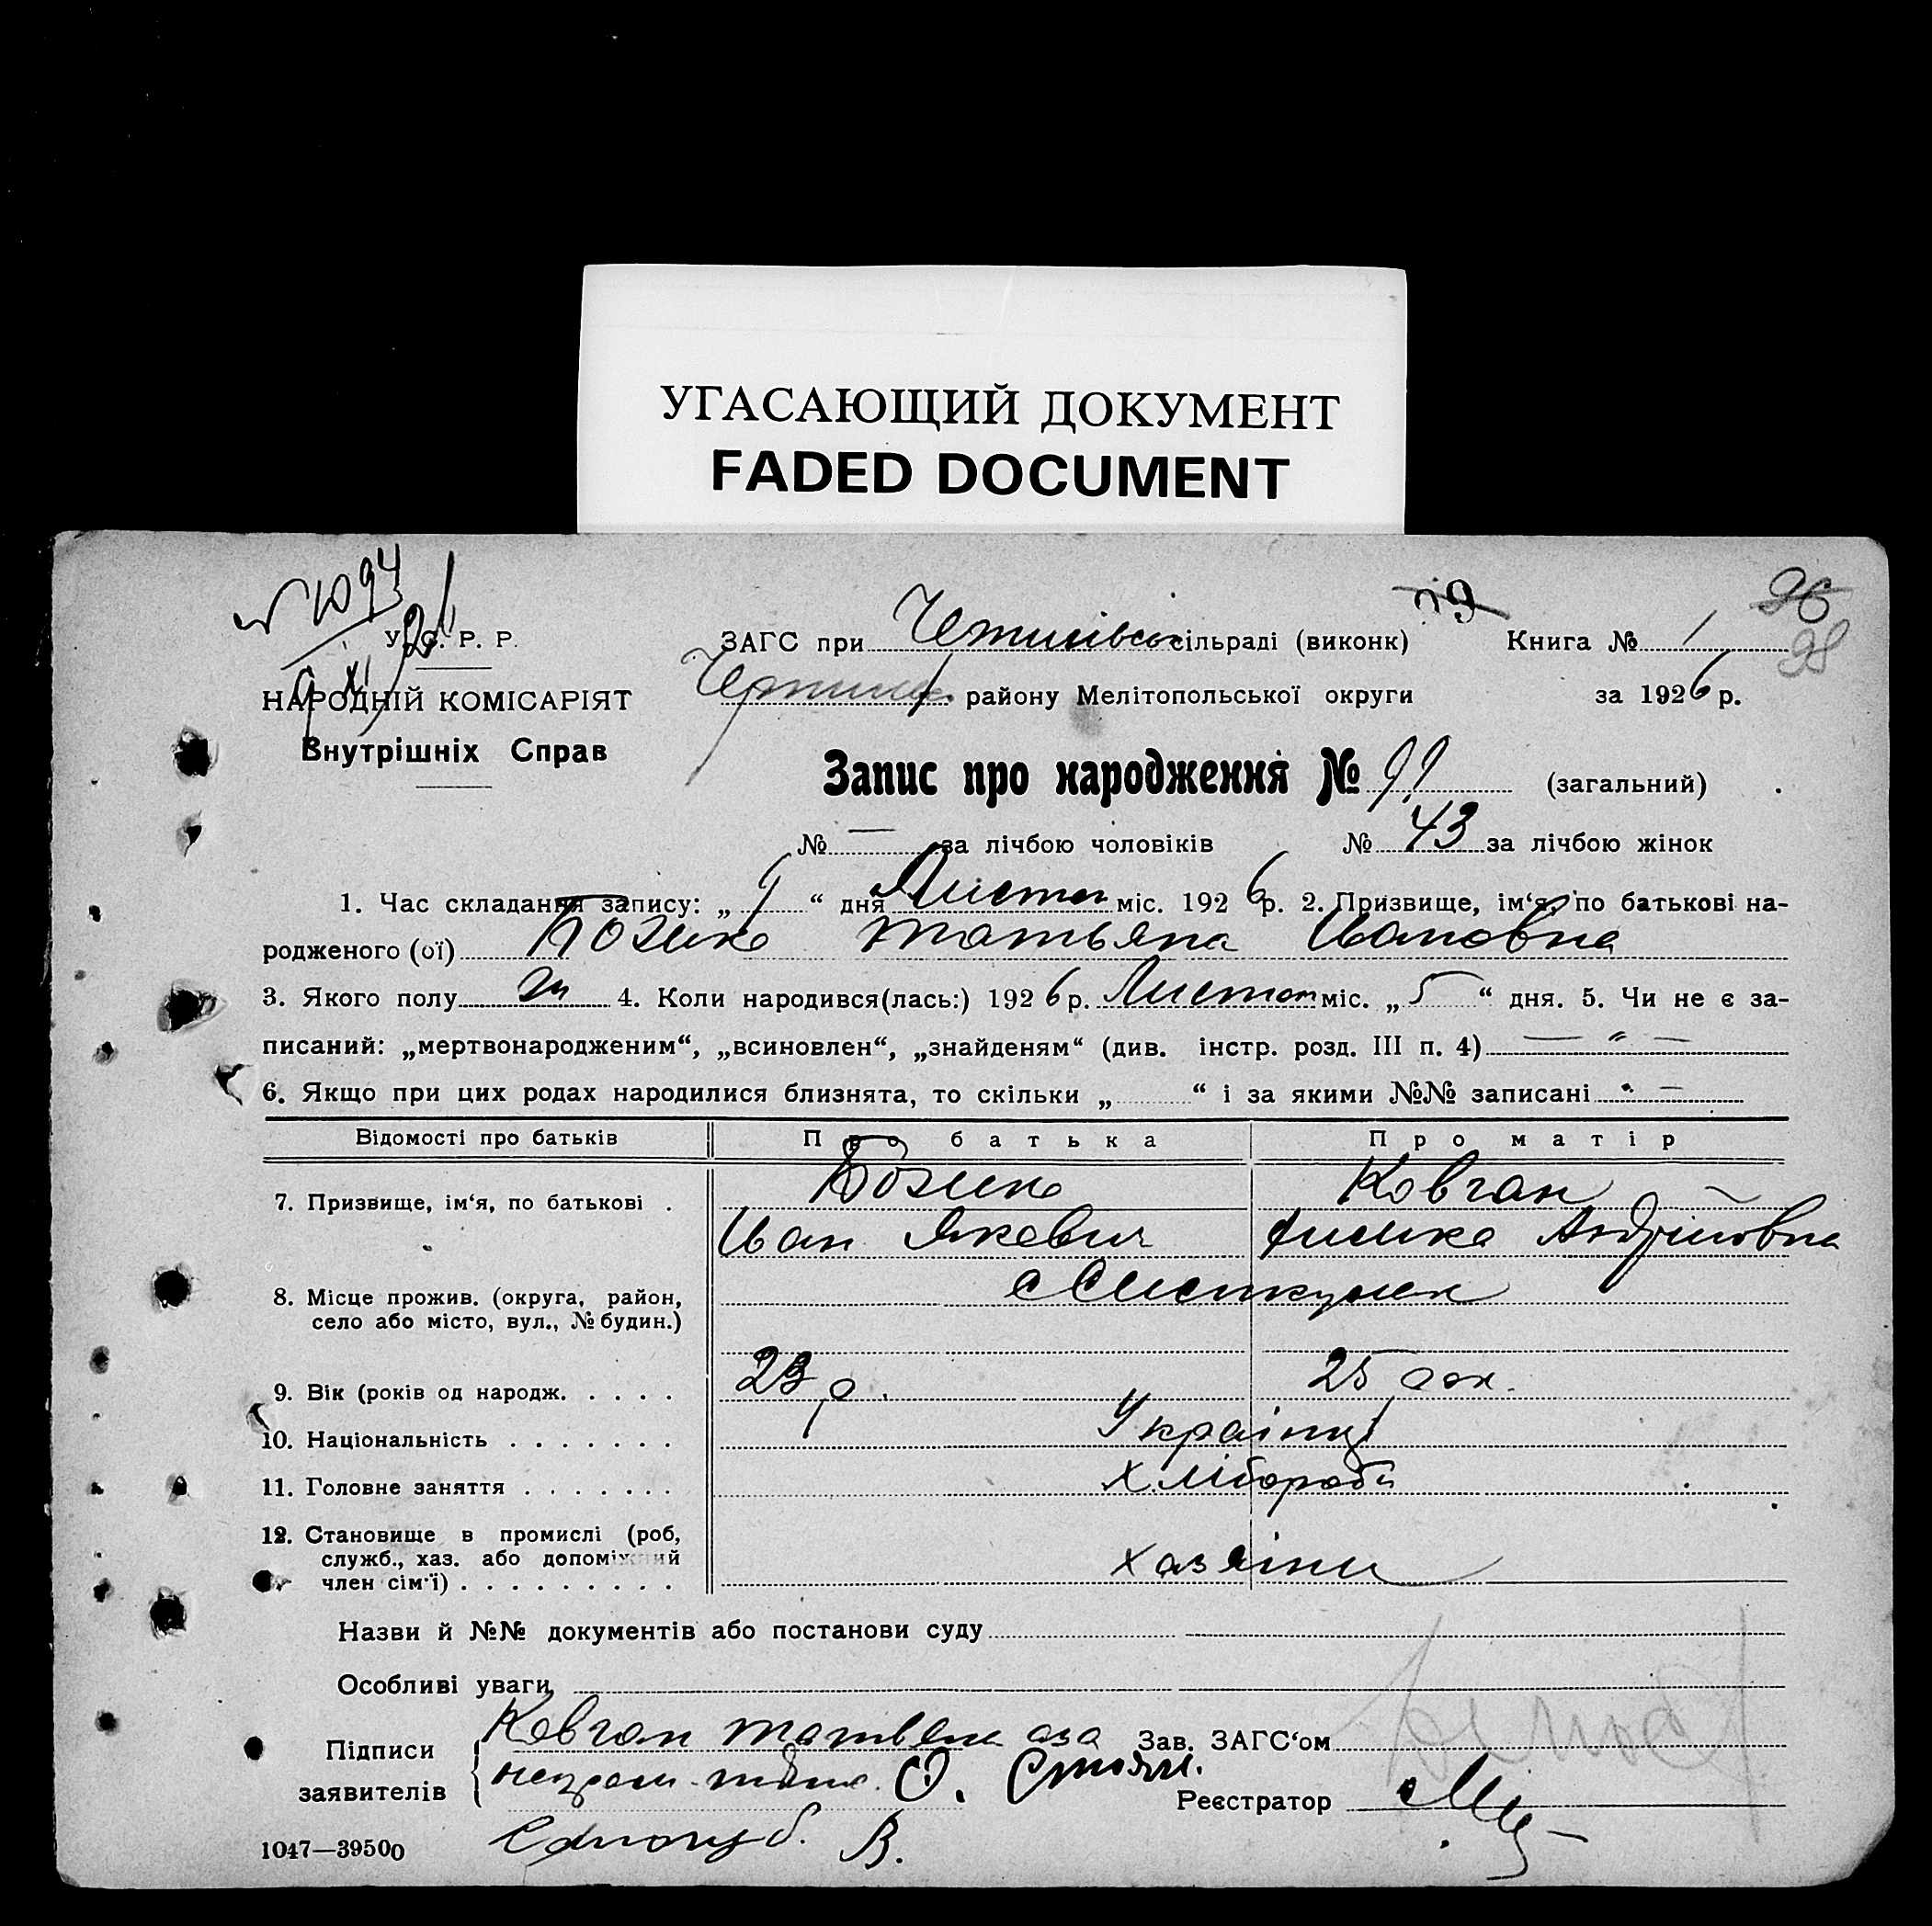 УГАСАЮЩИЙ ДОКУМЕНТ
FADED DOCUMENT
№ 1094
9/XI 26
79
96
98
У. С. Р. Р.
ЗАГС при сільраді (виконк) Книга № 1
НАРОДНІЙ КОМІСАРІЯТ
району Мелітопольської округи за 1926 р.
Внутрішніх Справ
Запис про народження № 99 (загальний)
№ — за лічбою чоловіків № 43 за лічбою жінок
1. Час складання запису: „ 9 “ дня Листоп міс. 1926 р. 2. Призвище, ім‘я, по батькові на-
родженого (ої) Бозико Татьяна Ивановна
3. Якого полу 4. Коли народився(лась:) 1926 р. Листоп міс. „ 5 “ дня. 5. Чи не є за-
писаний: „мертвонародженим“, „всиновлен“, „знайденям“ (див. інстр. розд. III п. 4) — „ —
6. Якщо при цих родах народилися близнята, то скільки „ “ і за якими №№ записані —
Відомості про батьків Про батька Про матір
7. Призвище, ім‘я, по батькові . Бозико Ковган
Иван Якович Андрійовна
8. Місце прожив. (округа, район,
село або місто, вул., № будин.)
9. Вік (років од народж. . . . . 23 р. 25 рок.
10. Національність . . . . . . . Українці
11. Головне заняття . . . . . . . Хлібороби
12. Становище в промислі (роб,
служб., хаз. або допоміжний
член сім‘ї) . . . . . . . . . хазяіни
Назви й №№ документів або постанови суду
Особливі уваги
Підписи Ковган Зав. ЗАГС‘ом
заявителів О. Реєстратор
В.
1047—39500